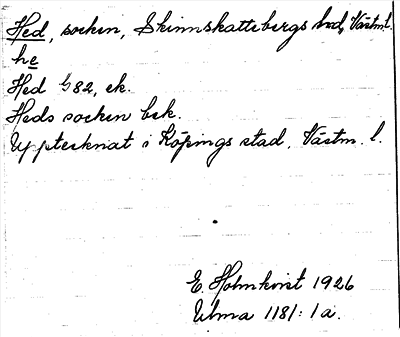 Hed, socken, Skinnskattebergs hrd, Västm. l.
he
Hed G82, ek.
Heds socken bsk.
Upptecknat i Köpings stad, Västm. l.
E. Holmkvist 1926
Ulma 1181:1a.